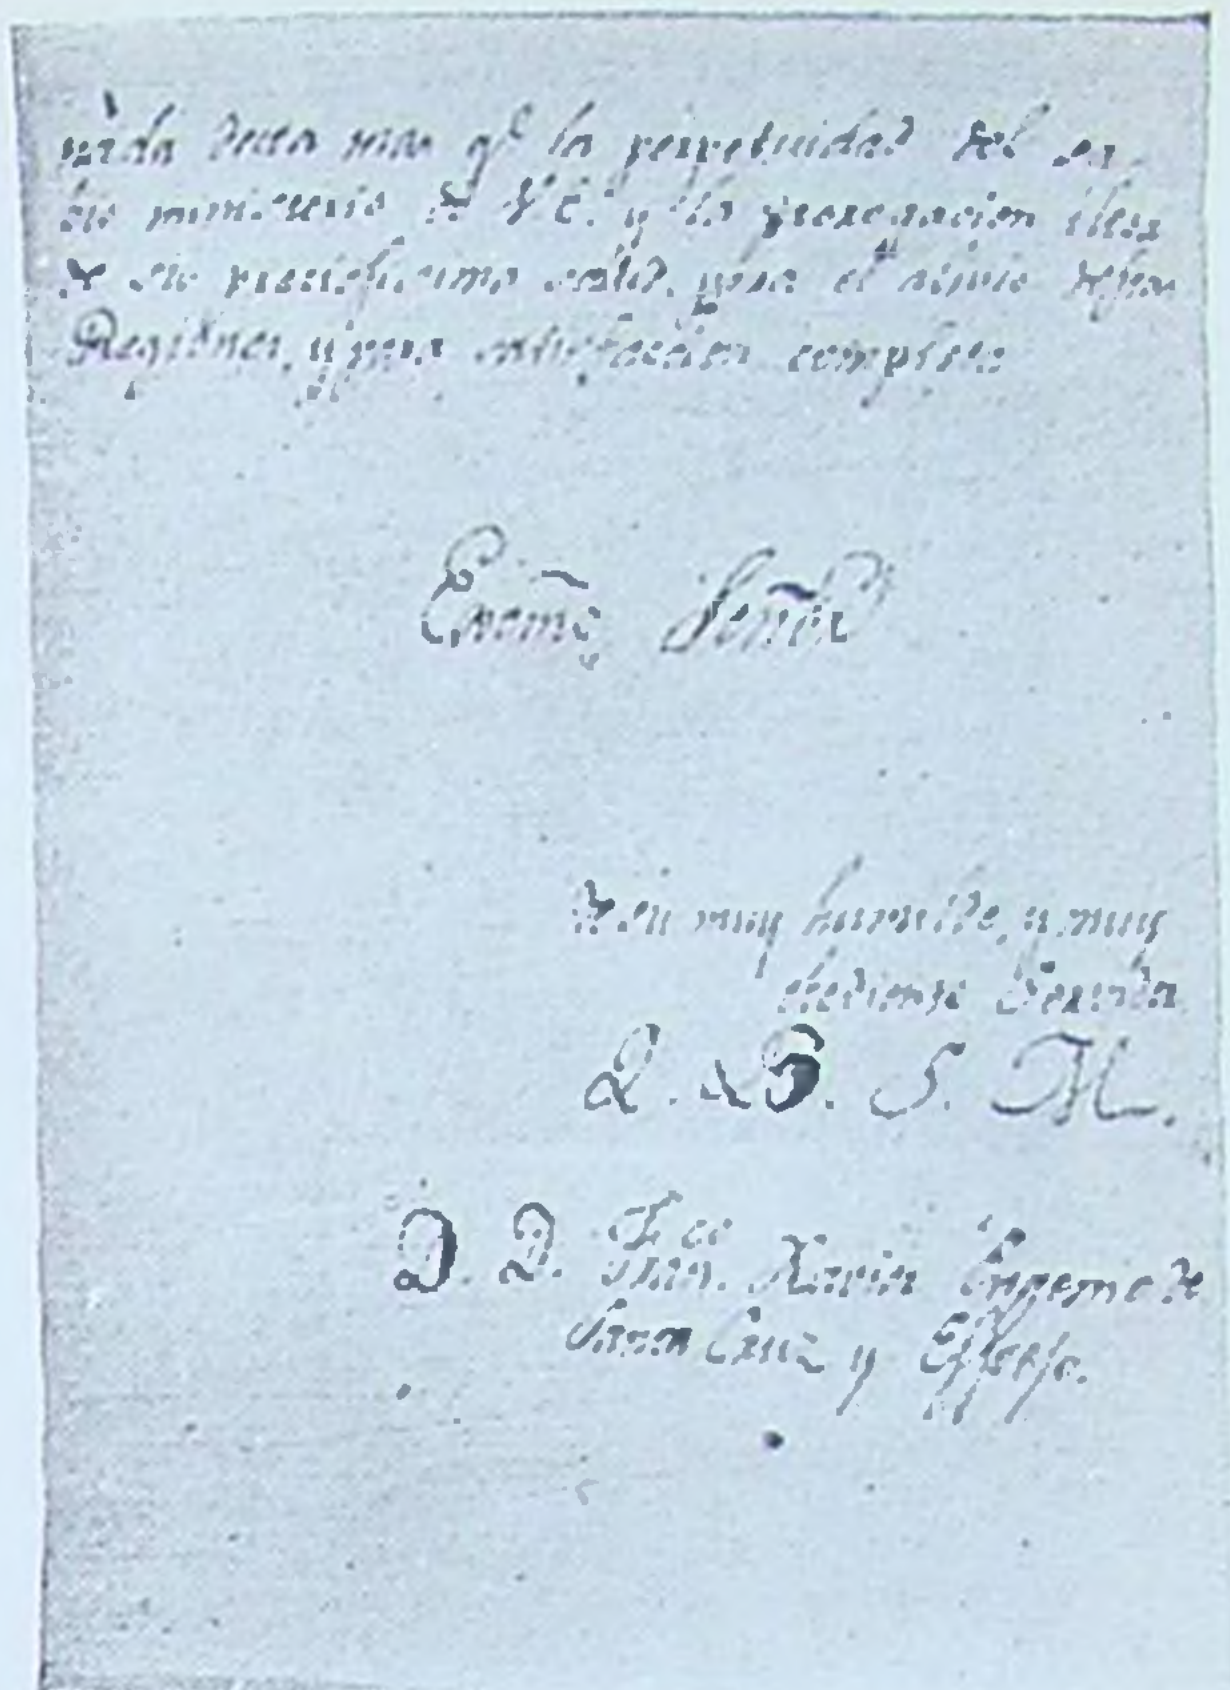 nada desea mas qᵉ. la perpetuidad del sa
bio ministerio de V. E. y la prorogacion
de su preciosissima salud, para el alivio
Regiones, y para satisfaccion completa
Excmõ Señor
de su muy humilde, y muy
obediente Servidor
Q. B. S. M.
D. D. Franᶜᵒ. Xavier Eugenio de
Santa Cruz y Espejo.